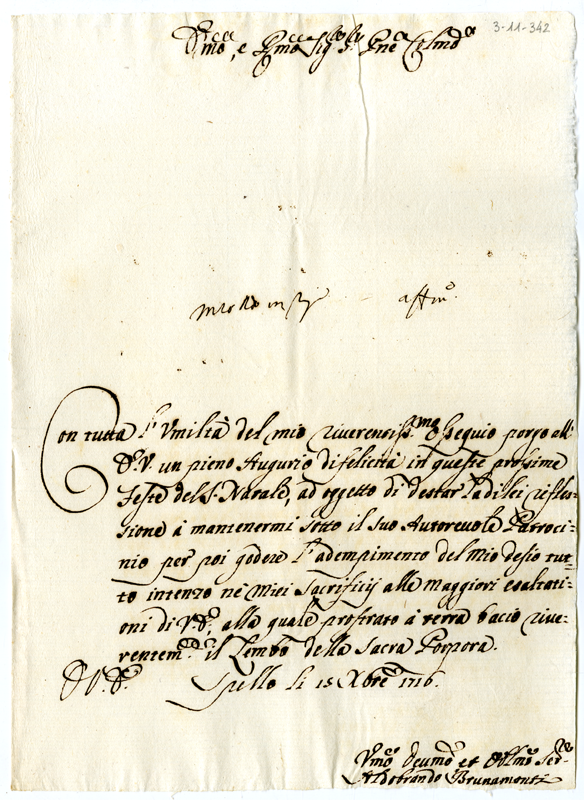 3-11-342
Em͠o, e Rm͠o Sig.r Pne Colm͠o
molto in sig affm͠o
Con tutta l'Vmiltà del mio riuerensiss.mo Ossequio porgo all'
E.V. un pieno Augurio di felicità in queste prossime
Feste del S. Natale, ad oggetto di destar la di lei refles=
sione à mantenermi sotto il suo Autoreuole Patroci=
nio per poi godere l'adempimento del mio desio tut=
to intenzo ne Miei Sacrificij alle maggiori esaltati=
oni di V.E., alla quale prostrato à terra bacio riue=
rentem.te il Lembo della Sacra Porpora.
D.V.E. Spello li 15 Xbre 1716.
Vmo Deumo et Obbmo Ser.
Aldobrando Brunamonti